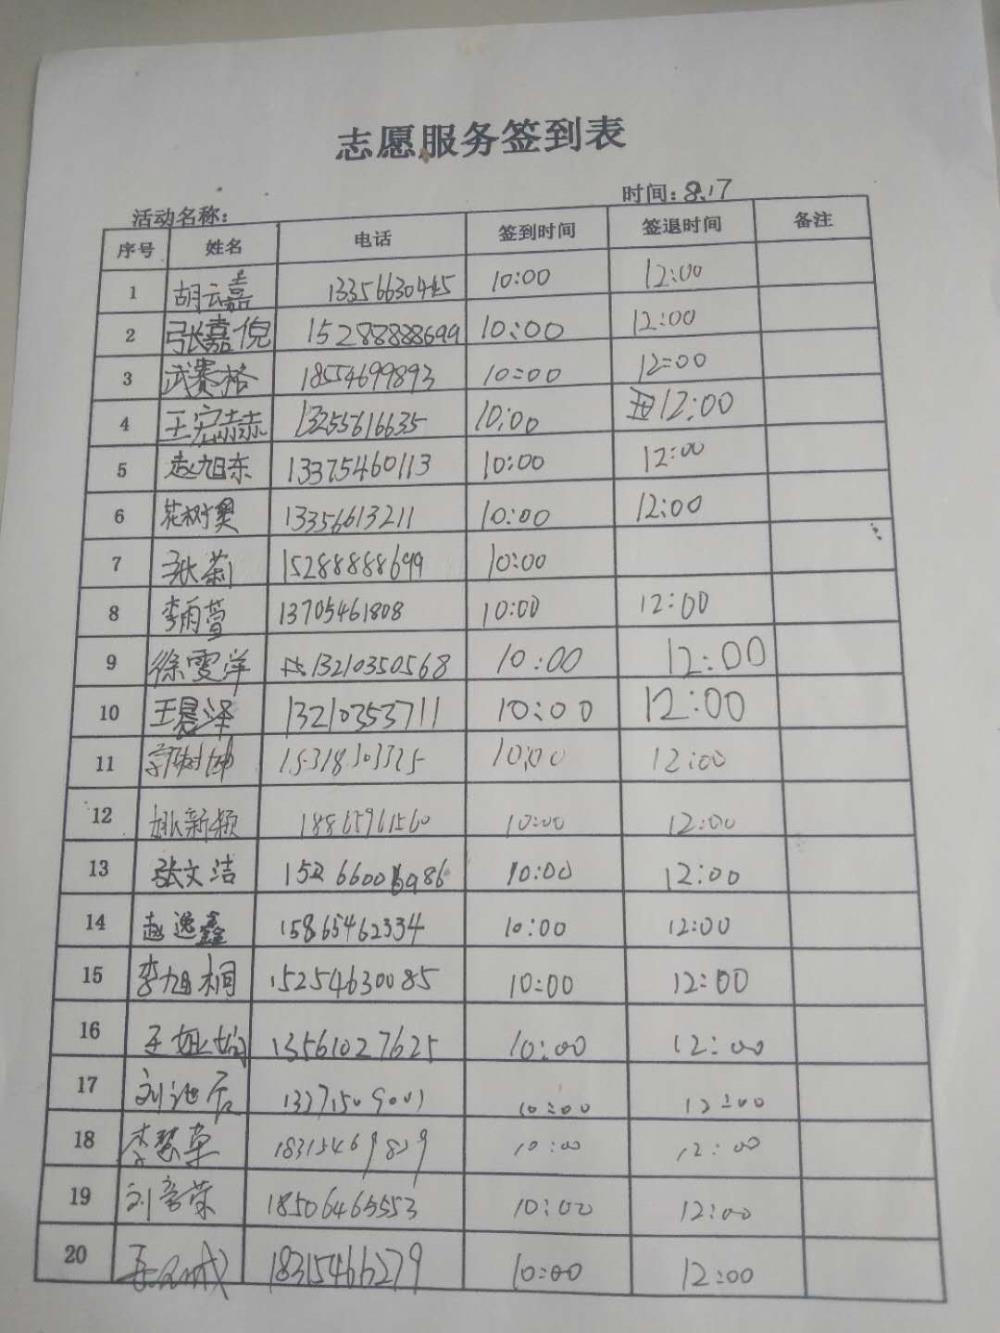 志愿服务签到表
活动名称： 时间：8.17
序号 姓名 电话 签到时间 签退时间 备注
1 胡云嘉 13356630445 10:00 12:00
2 张嘉倪 15288888699 10:00 12:00
3 武赛格 18554699893 10:00 12:00
4 王宏赫 13255616635 10:00 12:00
5 赵旭东 13375460113 10:00 12:00
6 13356613211 10:00 12:00
7 张菊 15288888699 10:00
8 李雨萱 13705461808 10:00 12:00
9 徐雯洋 13210350568 10:00 12:00
10 王晨泽 13210353711 10:00 12:00
11 郭树坤 15318303325 10:00 12:00
12 姚新颖 18865961560 10:00 12:00
13 张文洁 10:00 12:00
14 赵逸鑫 15865462334 10:00 12:00
15 李旭桐 15254630085 10:00 12:00
16 13561027625 10:00 12:00
17 13271509001 10:00 12:00
18 李慧草 18315469829 10:00 12:00
19 18506465553 10:00 12:00
20 18315466279 10:00 12:00